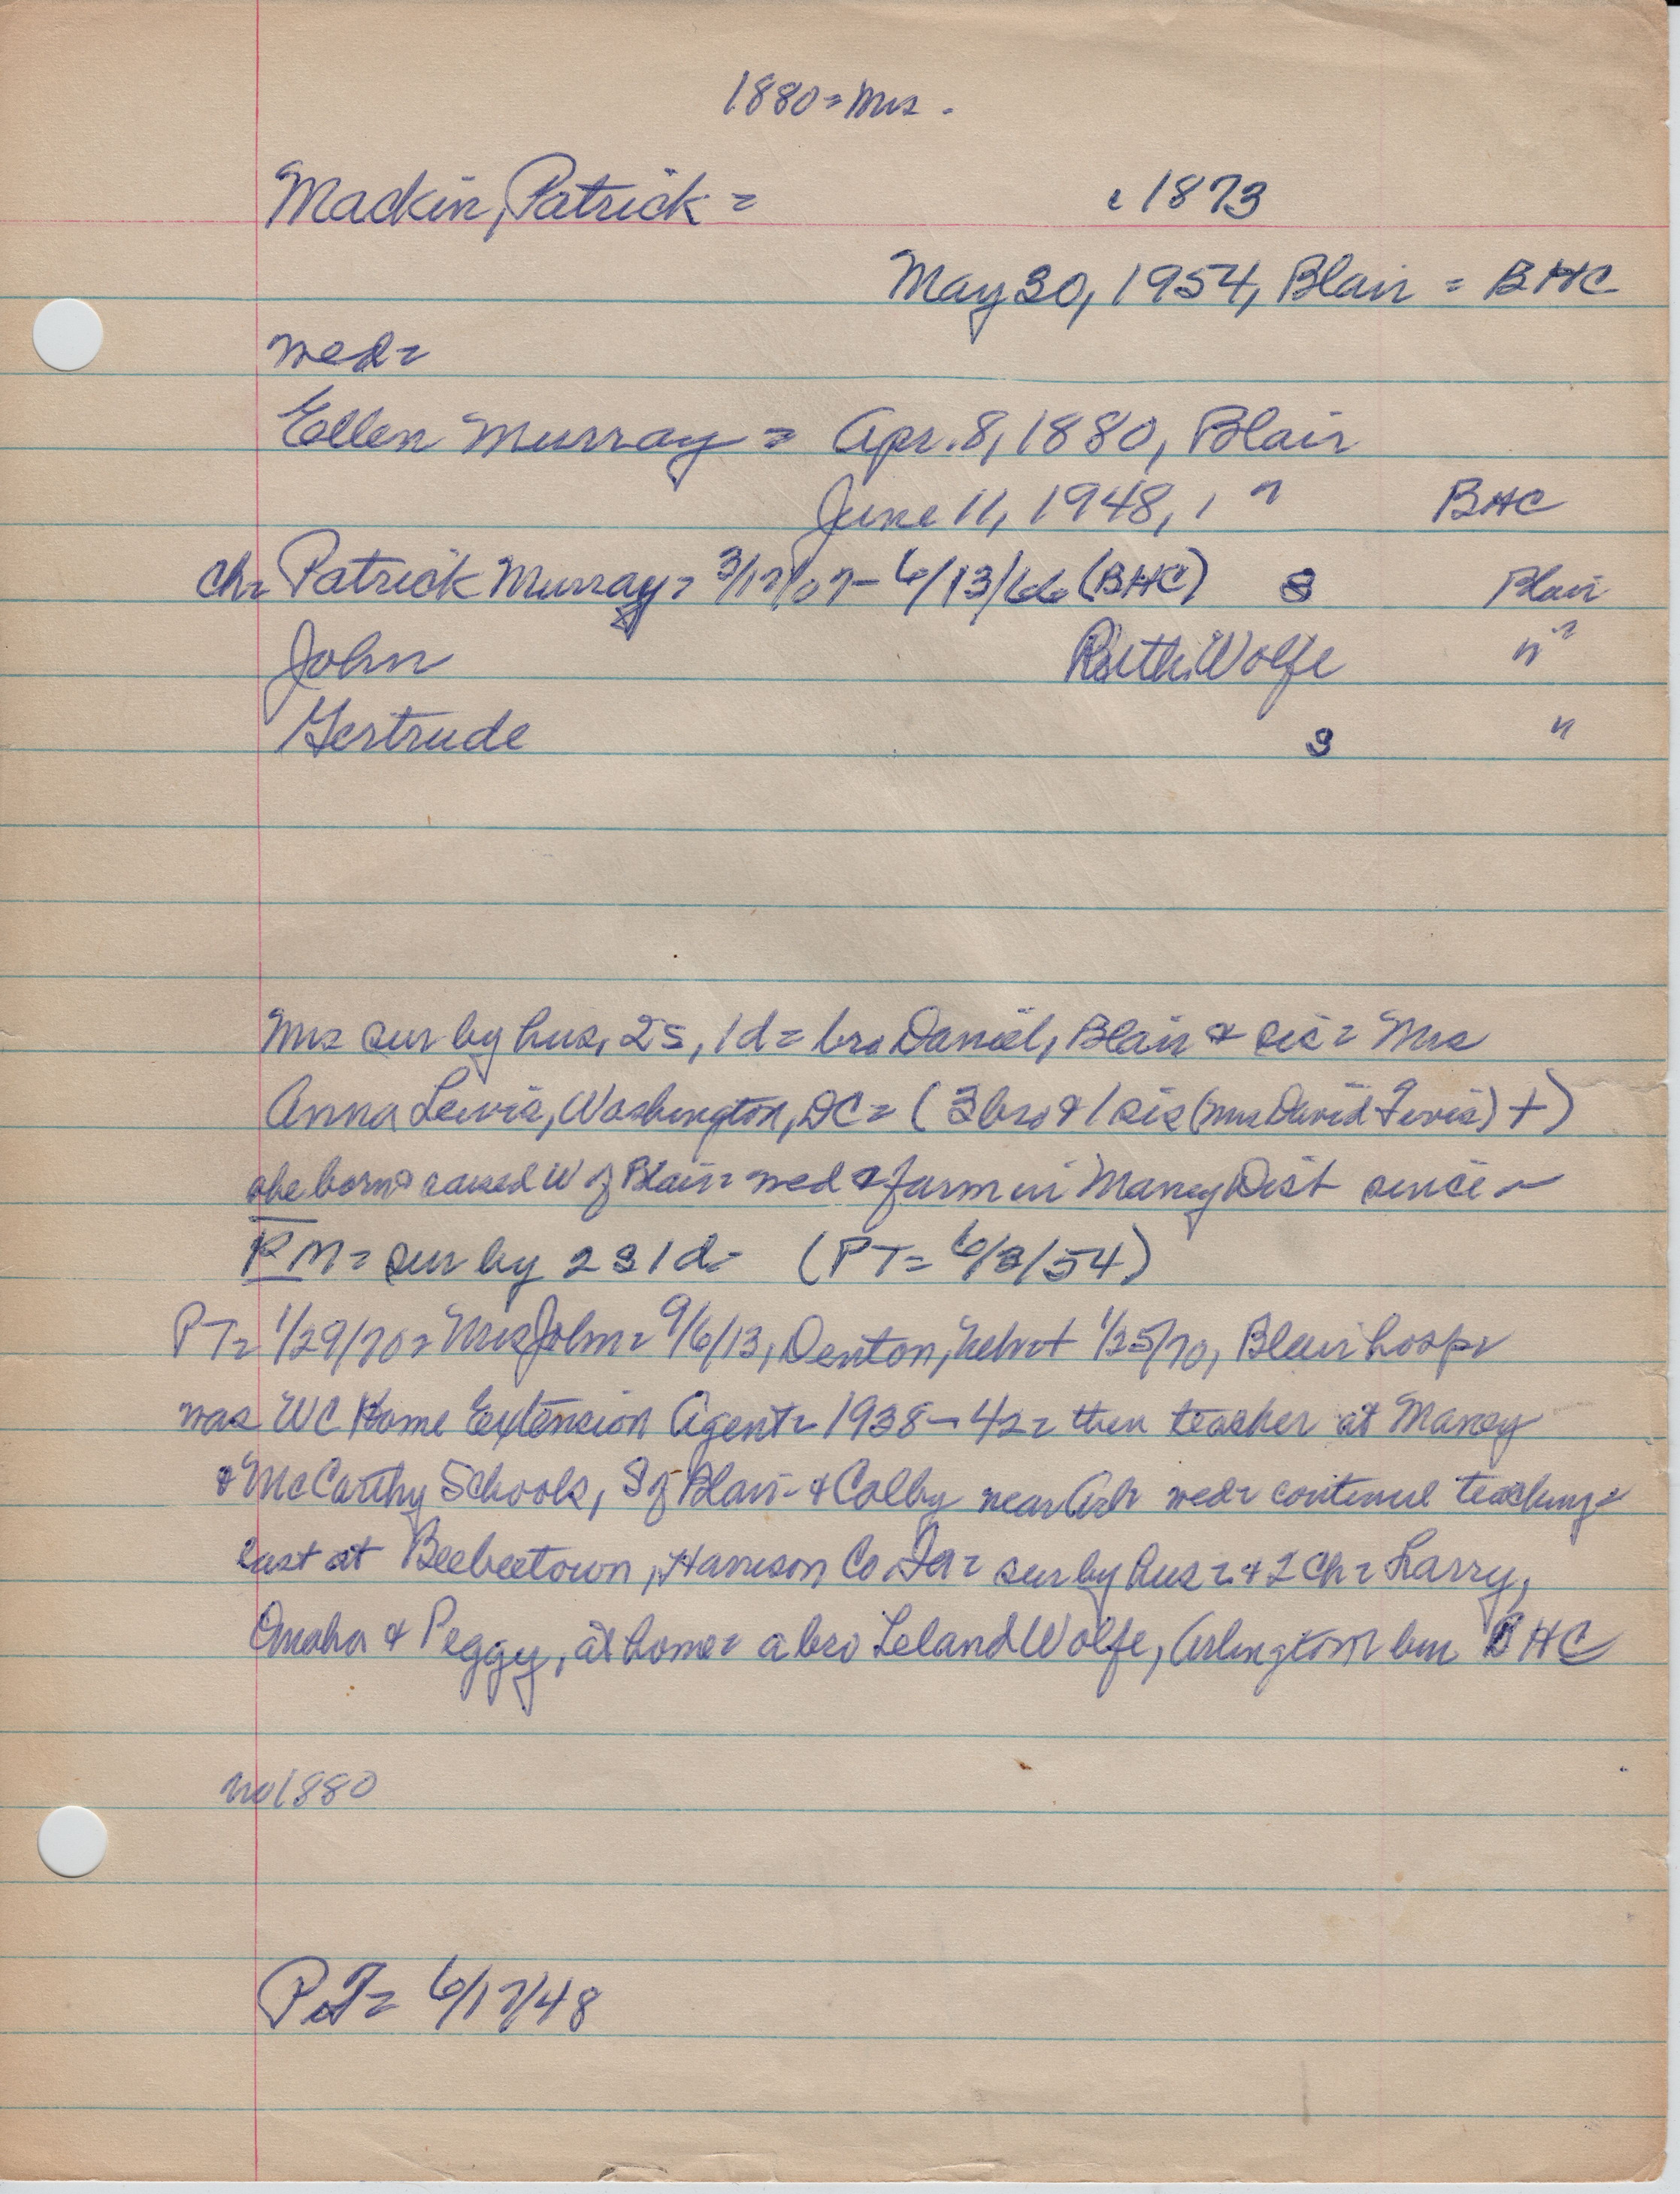 1880 = Mrs.
Mackin, Patrick = c 1873
May 30, 1954, Blair = BHC
wed =
Ellen Murray = Apr. 8, 1880, Blair
June 11, 1948, , " BHC
ch = Patrick Murray = 3/17/07 - 6/13/66 (BHC) S Blair
John Ruth Wolfe "
Gertrude S "
Mrs sur by hus, 2s, 1d = bro Daniel, Blair & sis = Mrs
Anna Lewis, Washington, DC = (3 bro & 1 sis (Mrs David Fevis) +)
she born & raised W of Blair = wed & farm in Maney Dist since =
PM = sur by 2s 1d = (PT = 6/3/54)
PT = 1/29/70 = Mrs John = 9/6/13, Denton, Neb = + 1/25/70, Blair hosp =
was WC Home Extension Agent = 1938-42 = then teacher at Maney
& McCarthy Schools, S of Blair - & Colby near Arl = wed = continued teaching =
last at Beebeetown, Harrison Co. Ia = sur by hus = + 2 ch = Larry,
Omaha & Peggy, at home = a bro Leland Wolfe, Arlington = bur BHC
no 1880
PT = 6/17/48